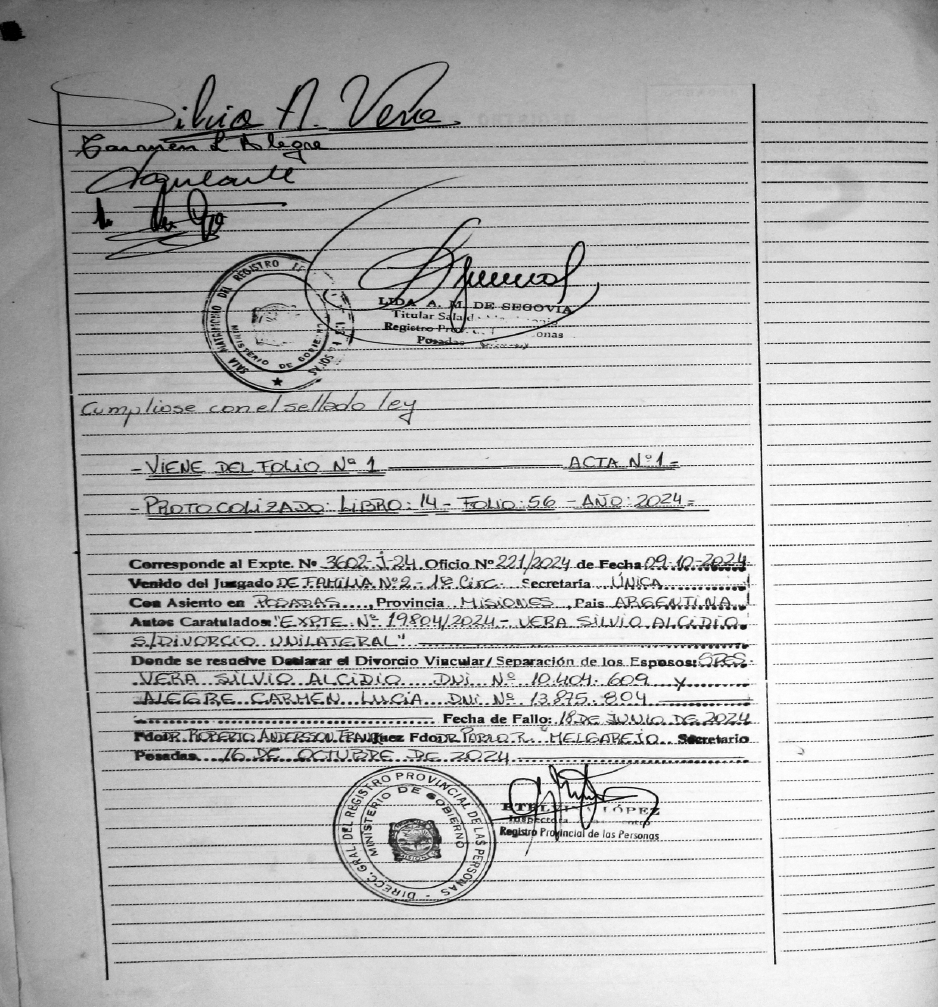 Silvio A. Vera
Carmen L Alegre
LIDA A. M. DE SEGOVIA
Titular Sala
Registro
Posadas
SALA MATRIMONIO DEL REGISTRO
MINISTERIO DE GOBIERNO
Cumpliose con el sellado ley
- VIENE DEL FOLIO Nº 1 ACTA Nº 1 =
- PROTOCOLIZADO: LIBRO: 14 - FOLIO: 56 - AÑO: 2024 =
Corresponde al Expte. Nº 3602-J-24. Oficio Nº 221/2024 de Fecha 09-10-2024
Venido del Juzgado DE FAMILIA Nº 2 - 1ª Circ. Secretaría ÚNICA
Con Asiento en POSADAS, Provincia MISIONES, Pais ARGENTINA
Autos Caratulados: "EXPTE. Nº 19804/2024 - VERA SILVIO ALCIDIO
S/DIVORCIO UNILATERAL"
Donde se resuelve Declarar el Divorcio Vincular/Separación de los Esposos: SRES.
VERA SILVIO ALCIDIO DNI Nº 10.404.609 y
ALEGRE CARMEN LUCIA DNI Nº 13.875.804
Fecha de Fallo: 18 DE JUNIO DE 2024
Fdo DR. ROBERTO ANDERSON FRANK Juez Fdo DR. PABLO R. MELGAREJO Secretario
Posadas 16 DE OCTUBRE DE 2024
DIRECC. GRAL DEL REGISTRO PROVINCIAL DE LAS PERSONAS
MINISTERIO DE GOBIERNO
LÓPEZ
Inspectora
Registro Provincial de las Personas